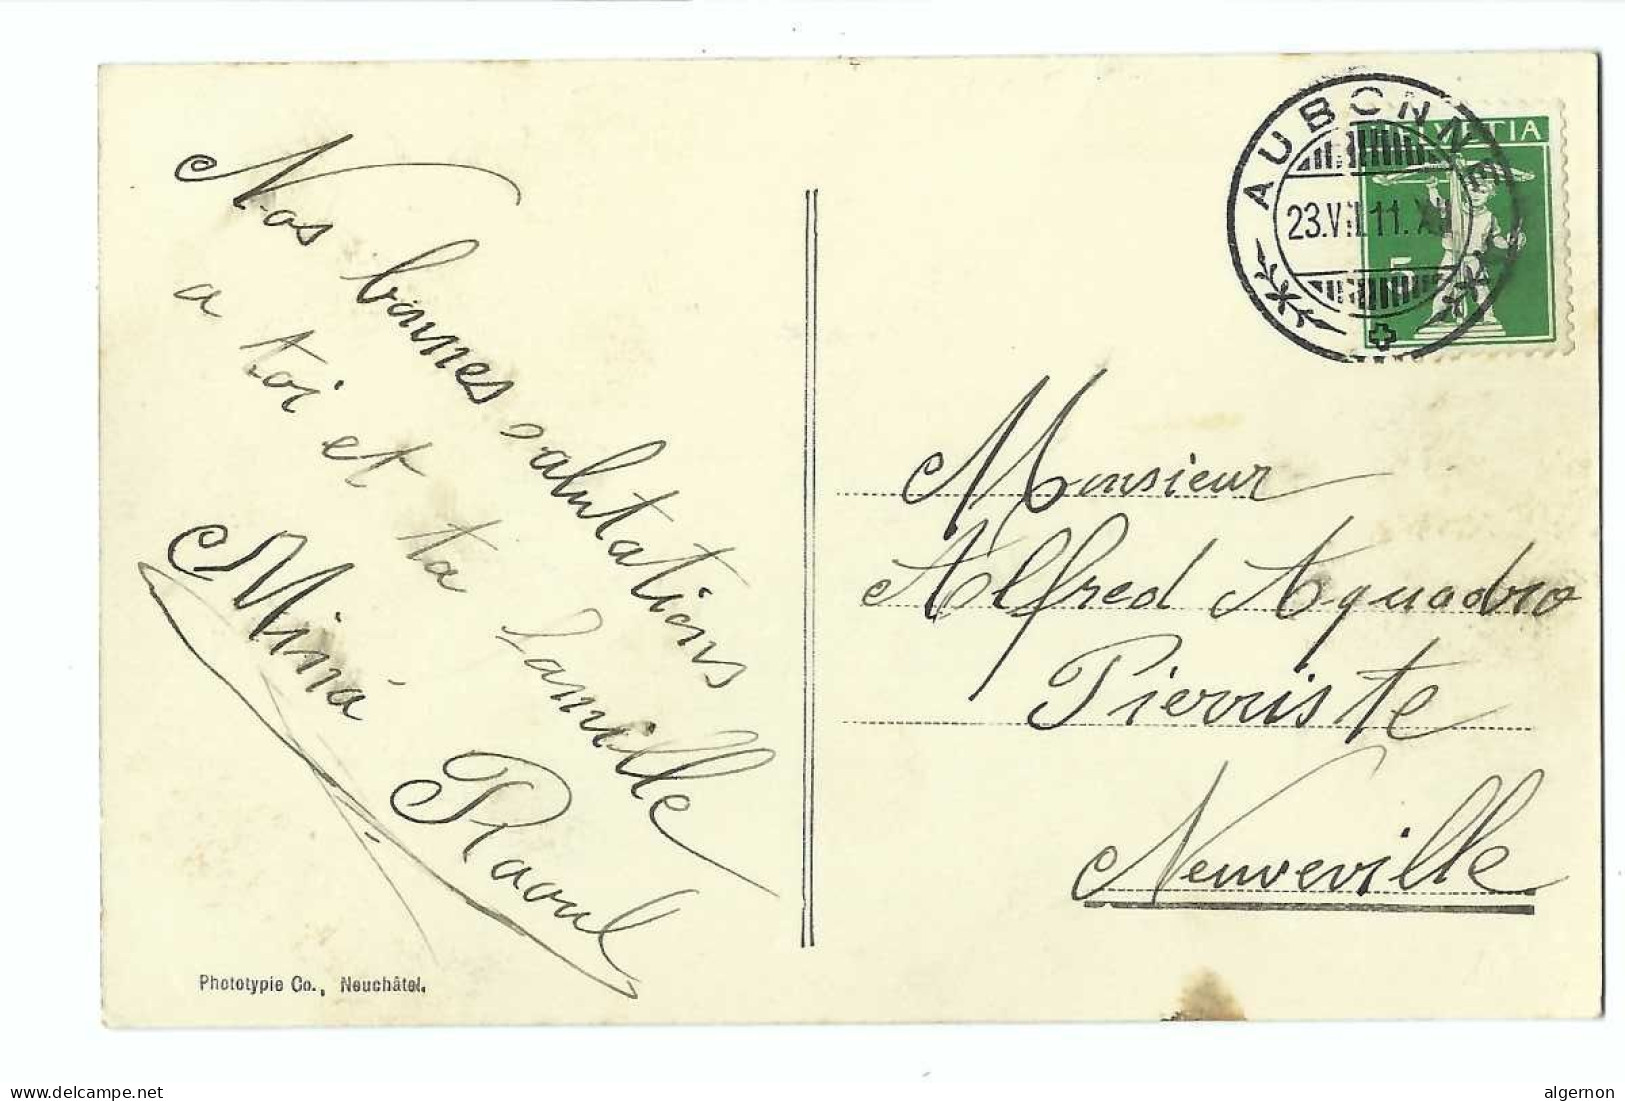 Nos bonnes salutations
a toi et ta famille
Mina Raoul
Phototypie Co., Neuchâtel.
AUBONNE
23.VII.11.
HELVETIA
5
Monsieur
Alfred Aquadro
Pierriste
Neuveville
www.delcampe.net
algernon